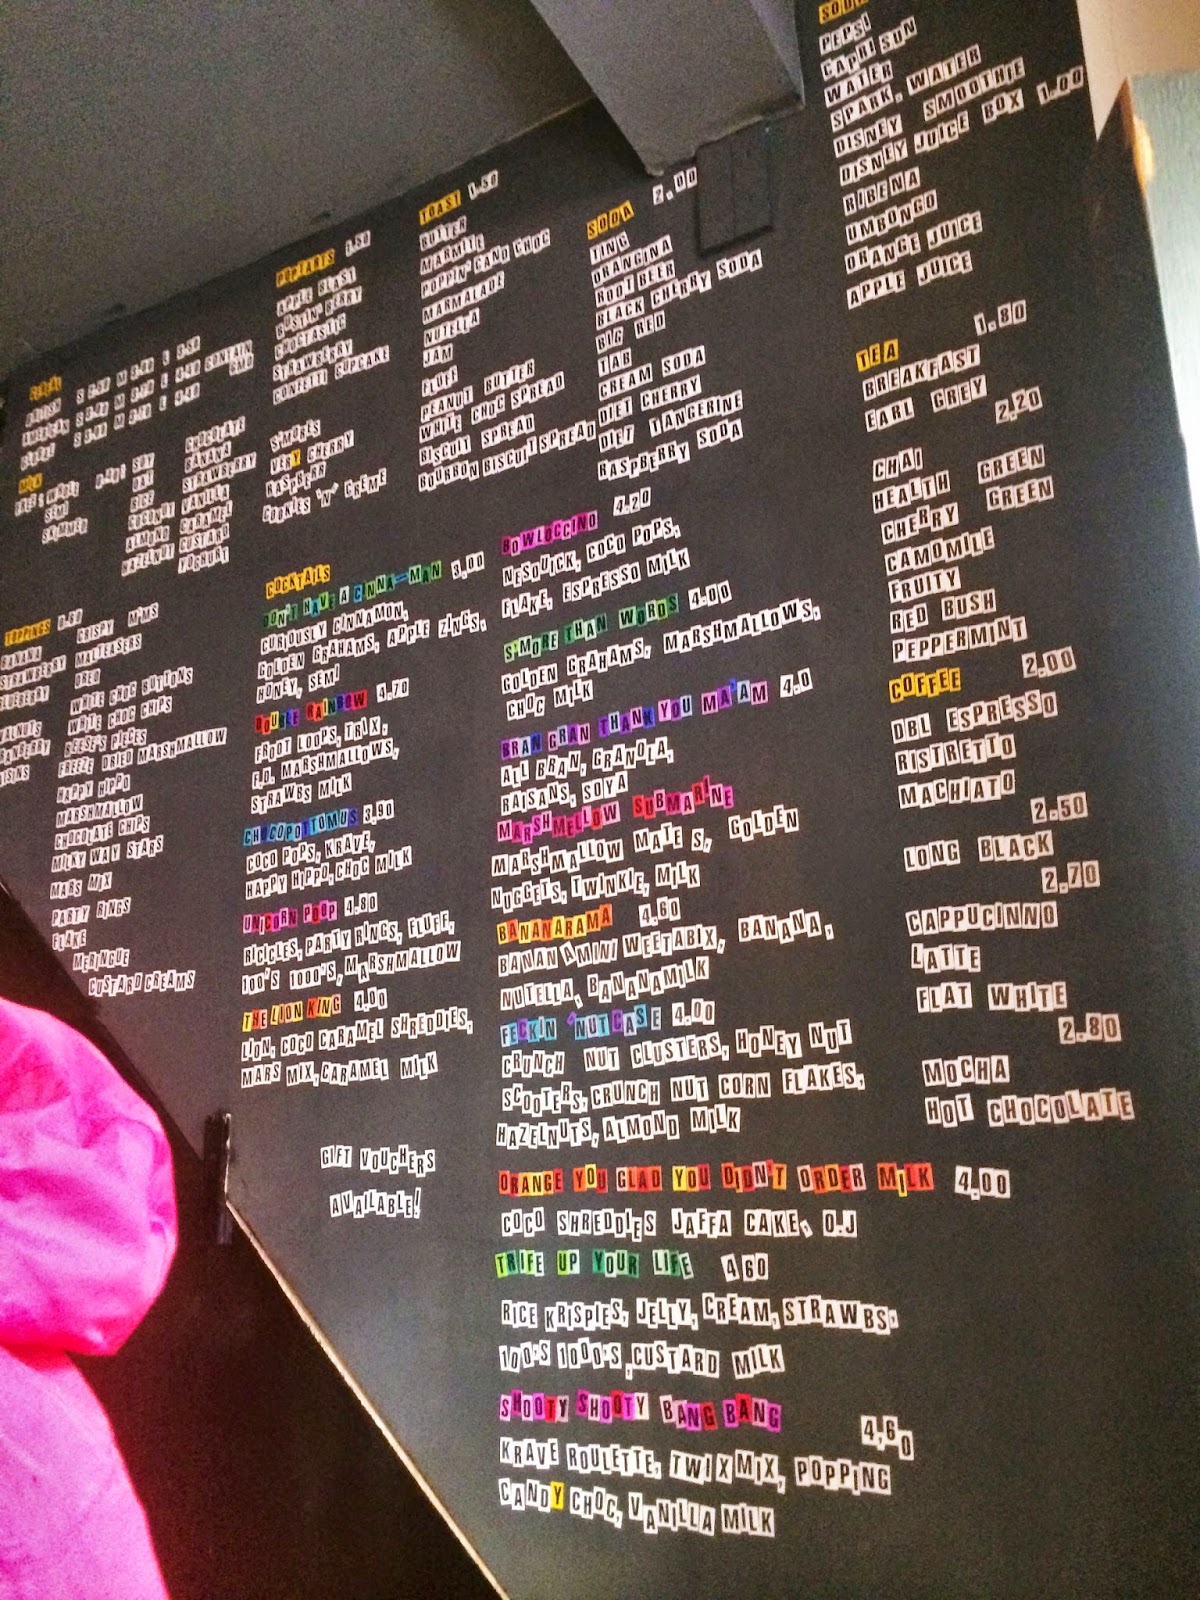 CEREAL
BRITISH S 2.50 M 3.20
AMERICAN
MILK
FREE: WHOLE
SEMI
SKIMMED
SOY
OAT
RICE
COCONUT
ALMOND
HAZELNUT
CHOCOLATE
BANANA
STRAWBERRY
VANILLA
CARAMEL
CUSTARD
YOGHURT
TOPPINGS
BANANA
STRAWBERRY
BLUEBERRY
CRISPY M'MS
MALTEASERS
OREO
WHITE CHOC BUTTONS
WHITE CHOC CHIPS
REESE'S PIECES
FREEZE DRIED MARSHMALLOW
HAPPY HIPPO
MARSHMALLOW
CHOCOLATE CHIPS
MILKY WAY STARS
MARS MIX
PARTY RINGS
FLAKE
MERINGUE
CUSTARD CREAMS
POPTARTS 1.50
APPLE BLAST
BUSTIN' BERRY
CHOCTASTIC
STRAWBERRY
CONFETTI CUPCAKE
S'MORES
VERY CHERRY
RASPBERR
COOKIES 'N' CREME
TOAST 1.50
BUTTER
MARMITE
POPPIN' CAND CHOC
MARMALADE
NUTELLA
JAM
FLUFF
PEANUT BUTTER
WHITE CHOC SPREAD
BISCUIT SPREAD
BOURBON BISCUIT SPREAD
SODA 2.00
TING
ORANGINA
ROOT BEER
BLACK CHERRY SODA
BIG RED
TAB
CREAM SODA
DIET CHERRY
DIET TANGERINE
RASPBERRY SODA
COCKTAILS
DON'T HAVE A CINNA-MAN 3.00
CURIOUSLY CINNAMON,
GOLDEN GRAHAMS, APPLE ZINGS,
HONEY, SEMI
DOUBLE RAINBOW 4.70
FROOT LOOPS, TRIX,
F.D. MARSHMALLOWS,
STRAWBS MILK
CHOCOPOTTOMUS 3.90
COCO POPS, KRAVE,
HAPPY HIPPO, CHOC MILK
UNICORN POOP 4.80
RICICLES, PARTY RINGS, FLUFF,
100'S 1000'S, MARSHMALLOW
THE LION KING 4.00
LION, COCO CARAMEL SHREDDIES,
MARS MIX, CARAMEL MILK
GIFT VOUCHERS
AVAILABLE!
BOWLOCCINO 4.20
NESQUICK, COCO POPS,
FLAKE, ESPRESSO MILK
S'MORE THAN WORDS 4.00
GOLDEN GRAHAMS, MARSHMALLOWS,
CHOC MILK
BRAN GRAN THANK YOU MA'AM 4.0
ALL BRAN, GRANOLA,
RAISANS, SOYA
MARSHMELLOW SUBMARINE
MARSHMALLOW MATE S, GOLDEN
NUGGETS, TWINKIE, MILK
BANANARAMA 4.60
BANANA MINI WEETABIX, BANANA,
NUTELLA, BANANA MILK
FECKIN 'NUTCASE 4.00
CRUNCH NUT CLUSTERS, HONEY NUT
SCOOTERS, CRUNCH NUT CORN FLAKES,
HAZELNUTS, ALMOND MILK
ORANGE YOU GLAD YOU DIDN'T ORDER MILK 4.00
COCO SHREDDIES JAFFA CAKE, O.J
TRIFE UP YOUR LIFE 4.60
RICE KRISPIES, JELLY, CREAM, STRAWBS,
100'S 1000'S, CUSTARD MILK
SHOOTY SHOOTY BANG BANG 4,60
KRAVE ROULETTE, TWIX MIX, POPPING
CANDY CHOC, VANILLA MILK
SODA
PEPSI
CAPRI SUN
WATER
SPARK, WATER
DISNEY SMOOTHIE
DISNEY JUICE BOX 1.00
RIBENA
UMBONGO
ORANGE JUICE
APPLE JUICE
TEA 1.80
BREAKFAST
EARL GREY
2,20
CHAI
HEALTH GREEN
CHERRY GREEN
CAMOMILE
FRUITY
RED BUSH
PEPPERMINT
COFFEE 2.00
DBL ESPRESSO
RISTRETTO
MACHIATO
2.50
LONG BLACK
2.70
CAPPUCINNO
LATTE
FLAT WHITE
2.80
MOCHA
HOT CHOCOLATE